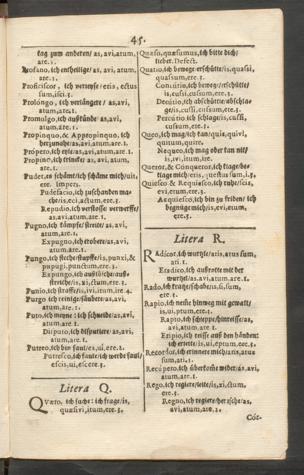 45.
tag zum anderen/ as, avi, atum,
are. 1.
Profano, ich entheilige/ as, avi, atum,
are. 1.
Proficiscor, ich verreise/ eris, ectus
sum, isci. 3.
Prolóngo, ich verlängere/ as, avi,
atum, are. 1.
Promulgo, ich as, avi,
atum, are. 1.
Propinquo, & Appropinquo, ich
as, avi, atum, are. 1.
Propero, ich eyle/ as, avi, atum, are. 1.
Propino, ich trincke/ as, avi, atum,
are. 1.
Pudet, es schämt/ich schäme mich/uit,
ere. impers.
Pudefacio, ich zuschanden ma-
che/is, eci, actum, ere. 3.
Repudio, ich verstosse verwerffe/
as, avi, atum, are. 1.
Pugno, ich kämpfe/streite/ as, avi,
atum, are. 1.
Expugno, ich erobere/ as, avi,
atum, are. 1.
Pungo, ich steche/stupffe/is, punxi, &
pupugi, punctum, ere. 3.
Expungo, ich
streiche/is, xi, ctum, ere. 3.
Punio, ich straffe/is, ivi, itum, ire. 4.
Purgo ich reinige/säubere/as, avi,
atum, are. 1.
Puto, ich meyne/ich schneide/as, avi,
atum, are.
Disputo, ich disputiere/ as, avi,
atum, are. 1.
Putreo, ich bin faul/es, ui, ere. 2.
Putresco, ich faule/ich werde faul/
escis, ui, escere. 3.
Litera Q.
Quæro, ich suche: ich frage/is,
quæsivi, itum, ere. 3.
Quæso, quæsumus, ich bitte dich/
lieber. Defect.
Quatio, ich bewege erschütte/is, quassi,
quassum, ere. 3.
Concutio, ich bewege/erschütte/
is, cussi, cussum, ere. 3.
Decutio, ich abschütte/abschla-
ge/is, cussi, ctum, ere. 3.
Percutio, ich schlage/is, cussi,
cussum, ere. 3.
Queo, ich mag/ich kan/quis, quivi,
quitum, quire.
Nequeo, ich mag oder kan nit/
is, ivi, itum, ire.
Queror, & Conqueror, ich klage/be-
klage mich/eris, questus sum, i. 3.
Quiesco & Requiesco, ich ruhe/scis,
evi, etum, ere. 3.
Acquiesco, ich bin zu friden/ ich
begnüge mich/is, evi, etum,
ere. 3.
Litera R.
Radicor, ich wurtzle/aris, atus sum,
ari. 1.
Eradico, ich außrotte mit der
wurtzel/as, avi, atum, are. 1.
Rado, ich kratze/schabe/is, si, sum,
ere. 3.
Rapio, ich neme hinweg mit gewalt/
is, ui, ptum, ere. 3.
Rapto, ich schleppe/hinreisse/as,
avi, atum, are. 1.
Eripio, ich reisse auß den händen:
ich errette/is, ui, eptum, ere. 3.
Recordor, ich erinnere mich/aris, atus
sum, ari. 1.
Recúpero, ich überkom wider/as, avi,
atum, are. 1.
Rego, ich regiere/leite/is, xi, ctum,
ere. 3.
Regno, ich regiere/herrsche/as,
avi, atum, are. 1.